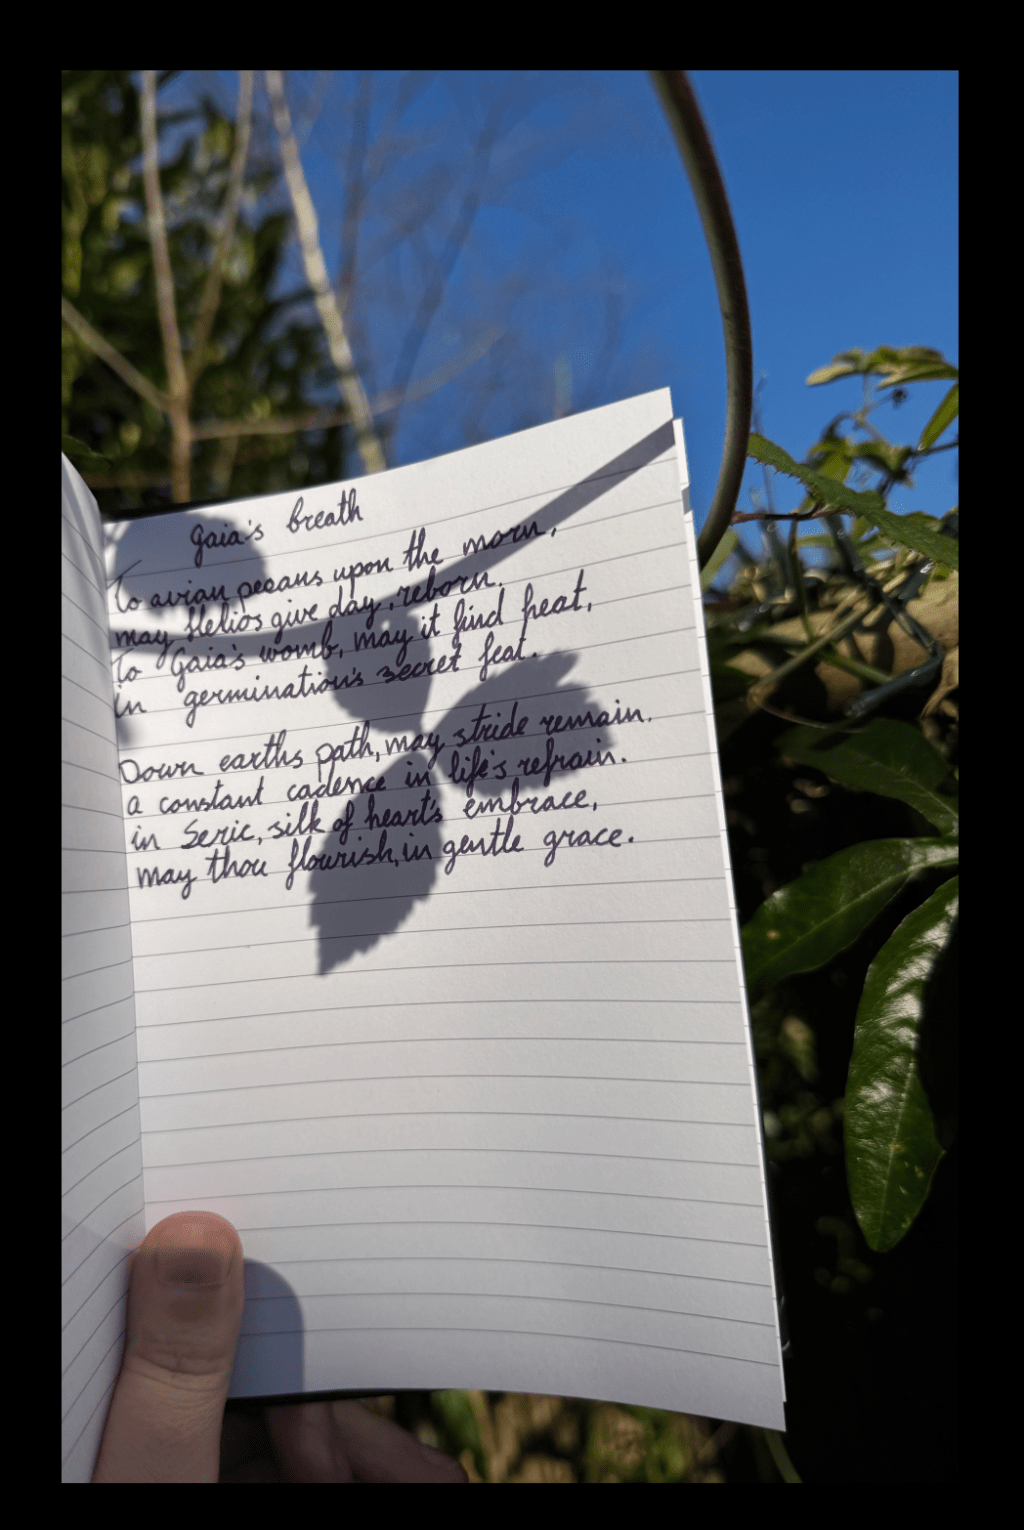 Gaia's breath
To avian peeans upon the morn,
may Helios give day, reborn.
To Gaia's womb, may it find heat,
in germination's secret feat.
Down earths path, may stride remain.
a constant cadence in life's refrain.
in Seric, silk of heart's embrace,
may thou flourish, in gentle grace.